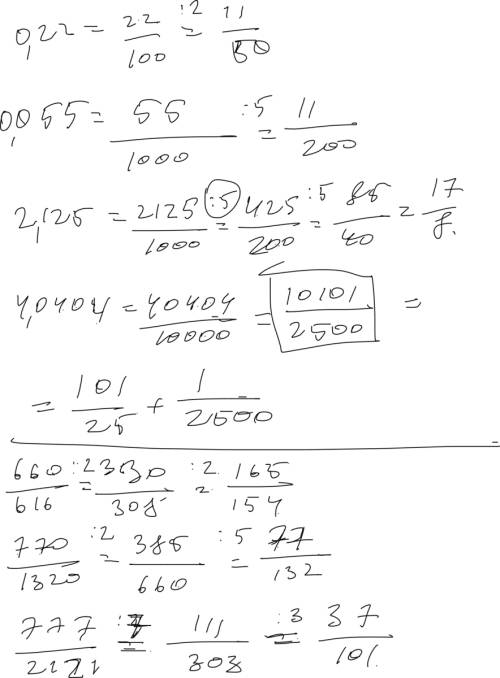 0,22 = 22/100 :2 = 11/50
0,055 = 55/1000 :5 = 11/200
2,125 = 2125/1000 :5 = 425/200 :5 = 85/40 = 17/8.
4,0404 = 40404/10000 = 10101/2500 =
= 101/25 + 1/2500
660/616 :2 = 330/308 :2 = 165/154
770/1320 :2 = 385/660 :5 = 77/132
777/2121 :7 = 111/303 :3 = 37/101